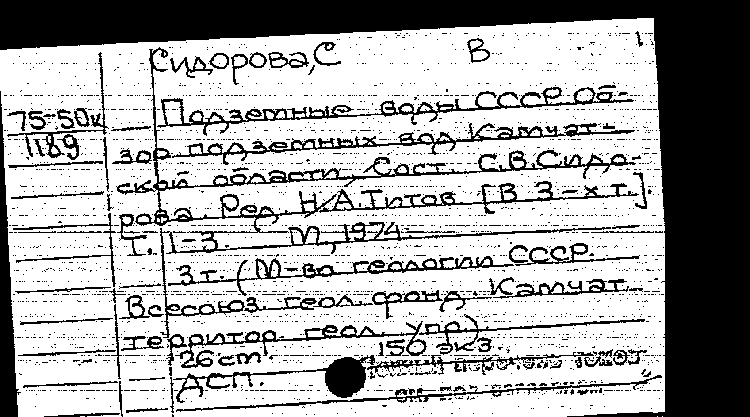 Сидорова, С В 1
75-50к
1189
Подземные воды СССР. Об-
зор подземных вод Камчат-
ской области. Сост. С.В.Сидо-
рова. Ред. Н.А.Титов. [В 3-х т.].
Т. 1-3. М., 1974.
3 т. (М-во геологии СССР.
Всесоюз. геол. фонд. Камчат.
территор. геол. упр.)
26 cm. 150 экз.
ДСП. перечень томов
см. под заглавием